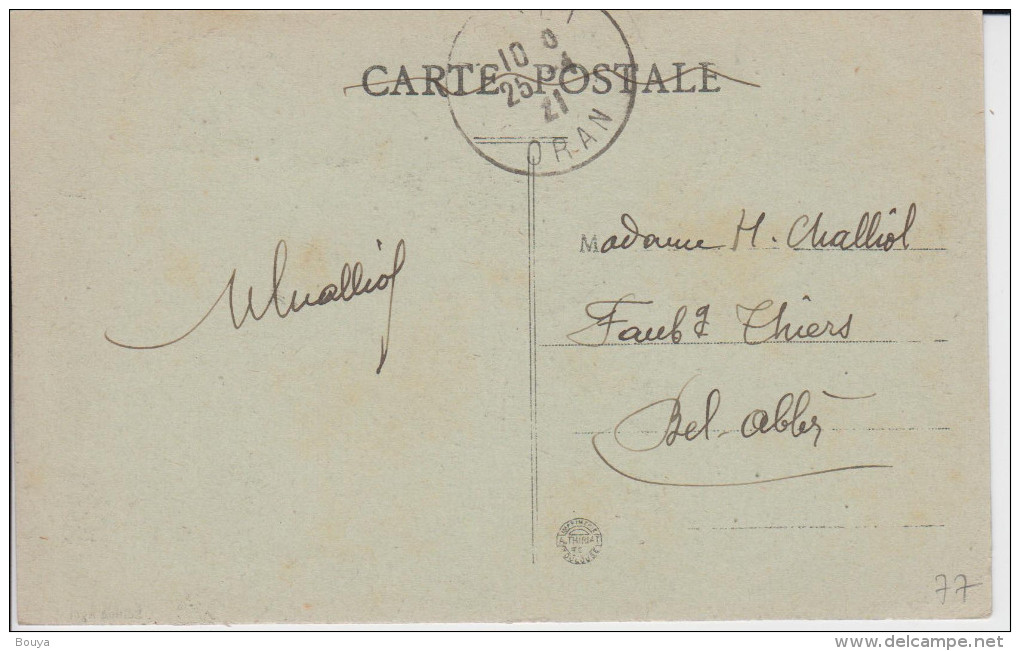 CARTE POSTALE
10 0
25 - 4
21
ORAN
Madame H. Challiol
Faubg Thiers
Bel-Abbès
THIRIAT
TOULOUSE
77
Bouya
www.delcampe.net